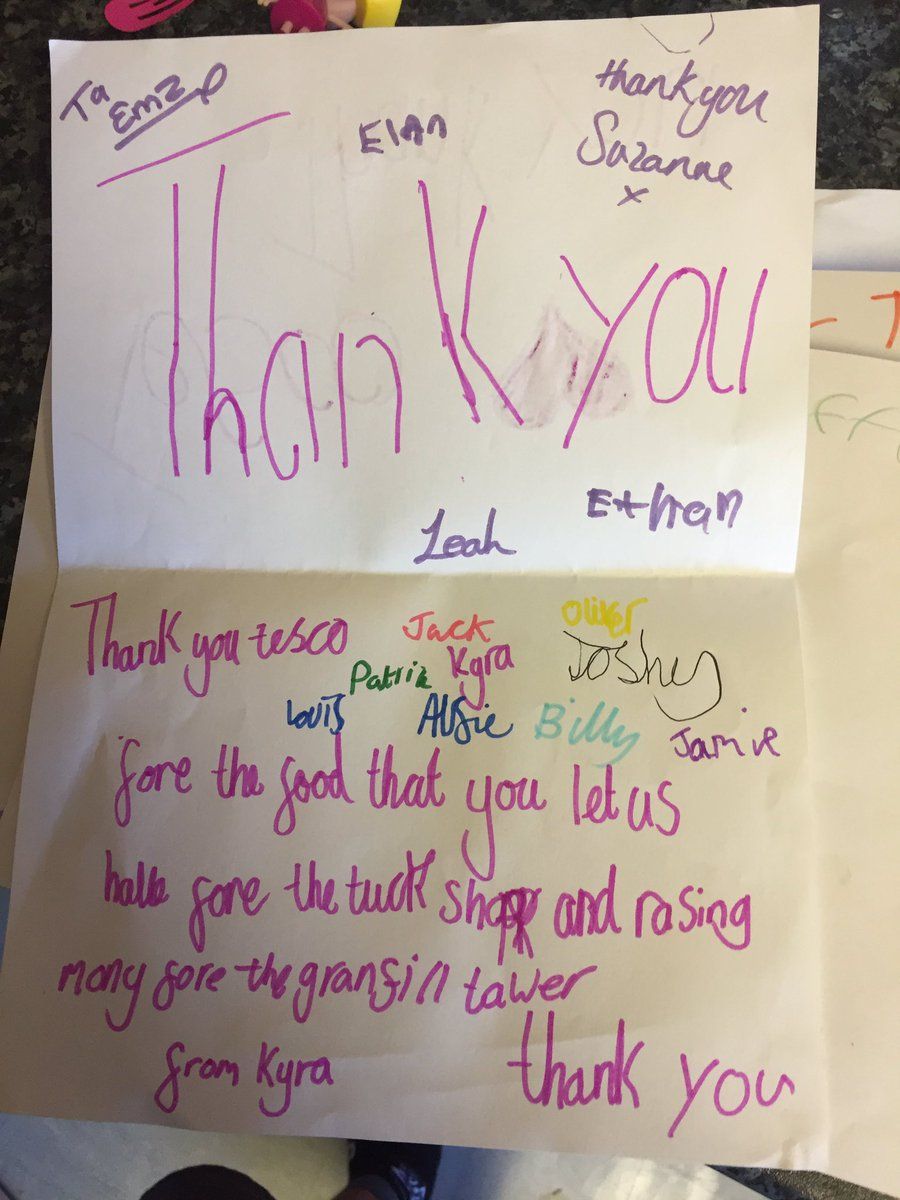 Ta
Emz
Elan
thank you
Suzanne
x
Thank you
Leah
Ethan
Thank you tesco
Jack
Oliver
Kyra
Joshey
Patrik
Louis
Alfie
Billy
Jamie
fore the food that you let us
halve fore the tuck shop and rasing
mony fore the granfill tawer
from Kyra
thank you
T
FF